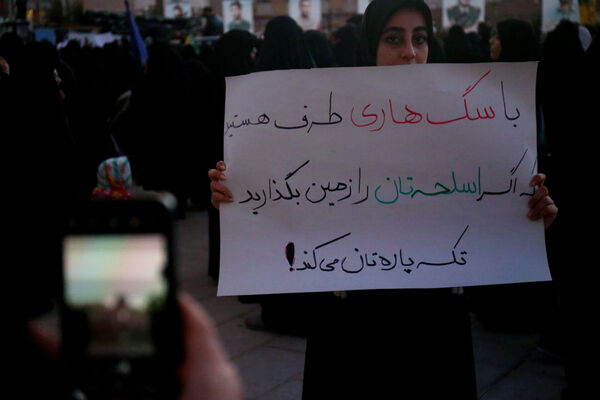 با سگ هاری طرف هستید
که اگر اسلحه تان را زمین بگذارید
تکه پاره تان می‌کند!